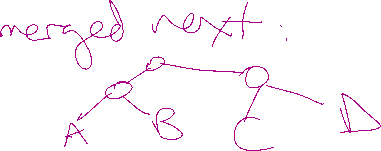 merged next :
A B C D